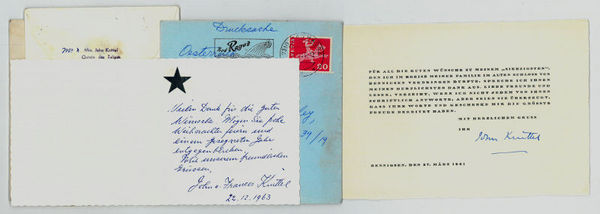 Mr & Mrs. John Knittel
Drucksache
Bad Ragaz
20
39/19
Vielen Dank für die guten
Wünsche. Mögen Sie frohe
Weihnachten feiern und
einem gesegneten Jahr
entgegenblicken.
Mit unseren freundlichen
Grüssen,
John u. Frances Knittel
22.12.1963
FÜR ALL DIE GUTEN WÜNSCHE ZU MEINEM „SIEBZIGSTEN",
DEN ICH IM KREISE MEINER FAMILIE IM ALTEN SCHLOSS VON
VERBRINGEN DURFTE, SPRECHE ICH IHNEN
MEINEN HERZLICHSTEN DANK AUS. LIEBE FREUNDE UND
LESER, VERZEIHT, WENN ICH NICHT JEDEM VON IHNEN
SCHRIFTLICH ANTWORTE, ABER SEIEN SIE ÜBERZEUGT,
DASS IHR WORTE UND GESCHENKE MIR DIE GRÖSSTE
FREUDE BEREITET HABEN.
MIT HERZLICHEM GRUSS
IHR
John Knittel
DEN 27. MÄRZ 1961